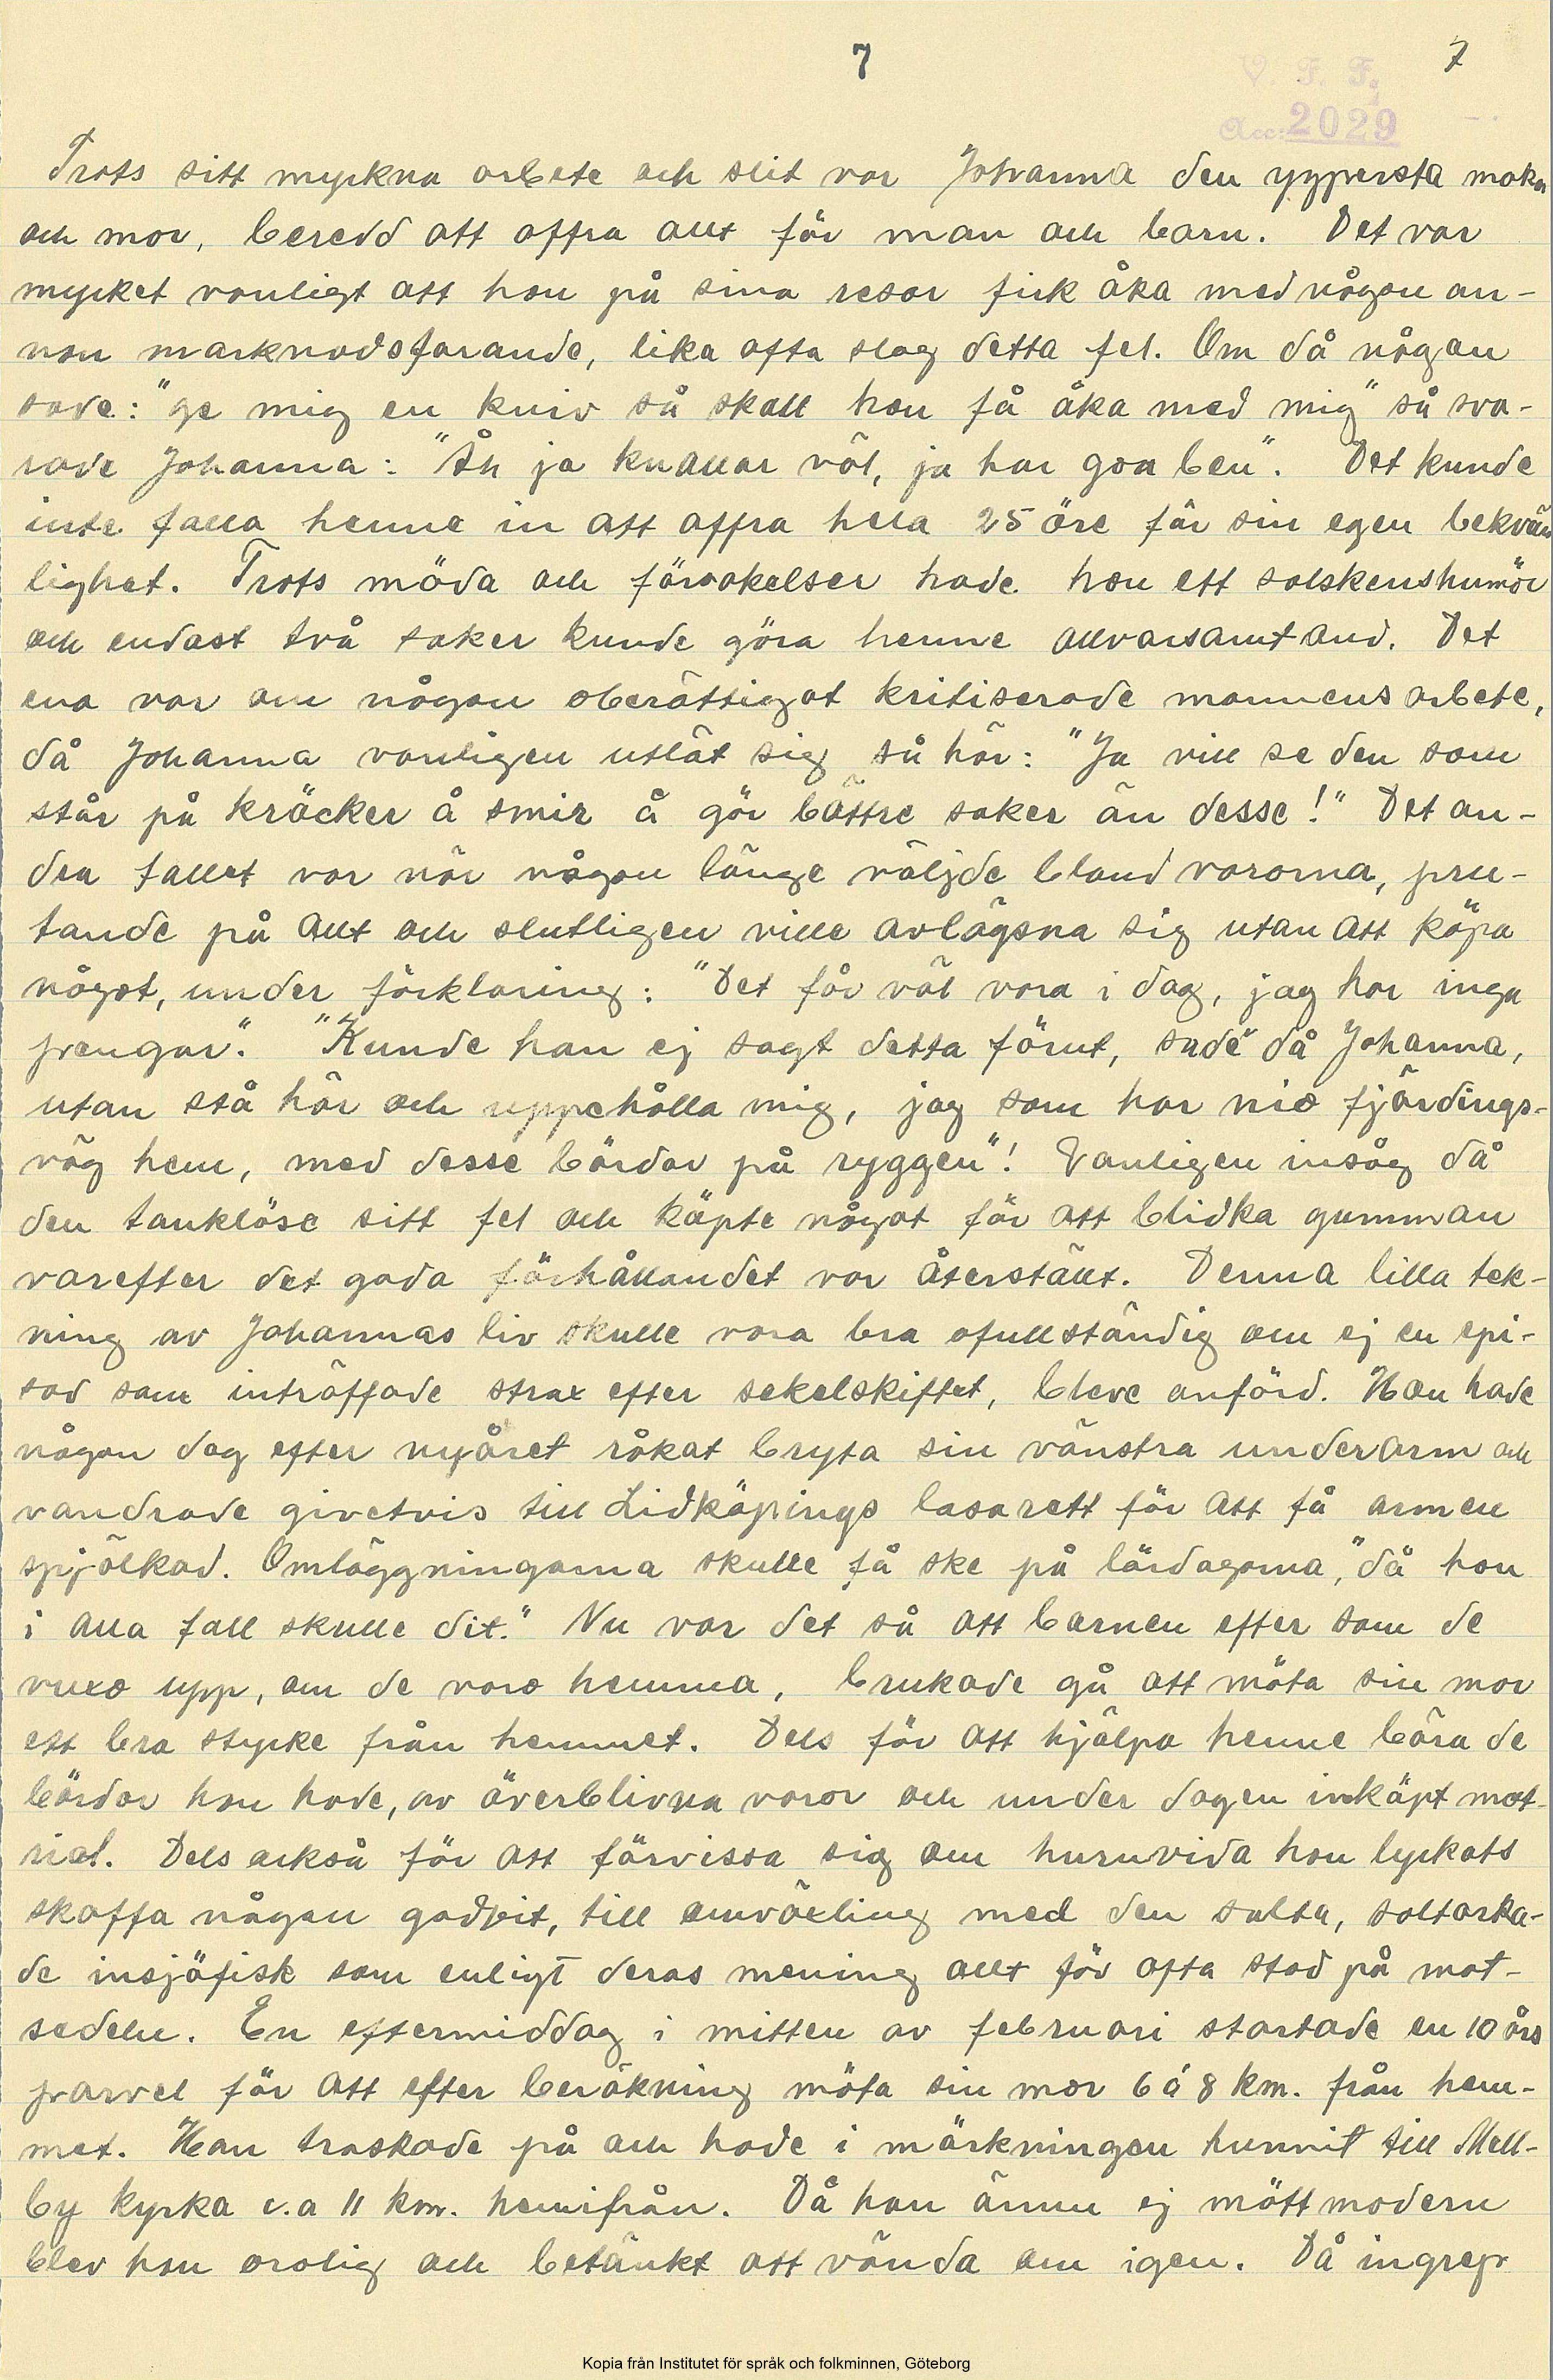 7
7
V. F. F.
Acc: 2029
Trots sitt myckna arbete och slit var Johanna den yppersta maka
och mor, beredd att offra allt för man och barn. Det var
mycket vanligt att hon på sina resor fick åka med någon an-
nan marknadsfarande, lika ofta slog detta fel. Om då någon
sade: "ge mig en kniv så skall hon få åka med mig" så sva-
rade Johanna: "Åh ja knallar väl, ja har goa ben". Det kunde
inte falla henne in att offra hela 25 öre för sin egen bekväm
lighet. Trots möda och försakelser hade hon ett solskenshumör
och endast två saker kunde göra henne allvarsamt ond. Det
ena var om någon oberättigat kritiserade mannens arbete,
då Johanna vanligen utlät sig så här: "Ja vill se den som
står på kräcker å smir å gör bättre saker än desse!" Det an-
dra fallet var när någon länge väljde bland varorna, pru-
tande på allt och slutligen ville avlägsna sig utan att köpa
något, under förklaring: "Det får väl vara i dag, jag har inga
pengar". "Kunde han ej sagt detta förut, sade då Johanna,
utan stå här och uppehålla mig, jag som har nio fjärdings-
väg hem, med desse bördor på ryggen"! Vanligen insåg då
den tanklöse sitt fel och köpte något för att blidka gumman
varefter det goda förhållandet var återställt. Denna lilla tek-
ning av Johannas liv skulle vara bra ofullständig om ej en epi-
sod som inträffade strax efter sekelskiftet, bleve anförd. Hon hade
någon dag efter nyåret råkat bryta sin vänstra underarm och
vandrade givetvis till Lidköpings lasarett för att få armen
spjälkad. Omläggningarna skulle få ske på lördagarna, "då hon
i alla fall skulle dit." Nu var det så att barnen efter som de
vuxo upp, om de voro hemma, brukade gå att möta sin mor
ett bra stycke från hemmet. Dels för att hjälpa henne bära de
bördor hon hade, av överblivna varor och under dagen inköpt mat-
rial. Dels också för att förvissa sig om huruvida hon lyckats
skaffa någon godbit, till omväxling med den salta, soltorka-
de insjöfisk som enligt deras mening allt för ofta stod på mat-
sedeln. En eftermiddag i mitten av februari startade en 10 års
parvel för att efter beräkning möta sin mor 6 á 8 km. från hem-
met. Han traskade på och hade i mörkningen hunnit till Mell-
by kyrka c.a 11 km. hemifrån. Då han ännu ej mött modern
blev han orolig och betänkt att vända om igen. Då ingrep
Kopia från Institutet för språk och folkminnen, Göteborg